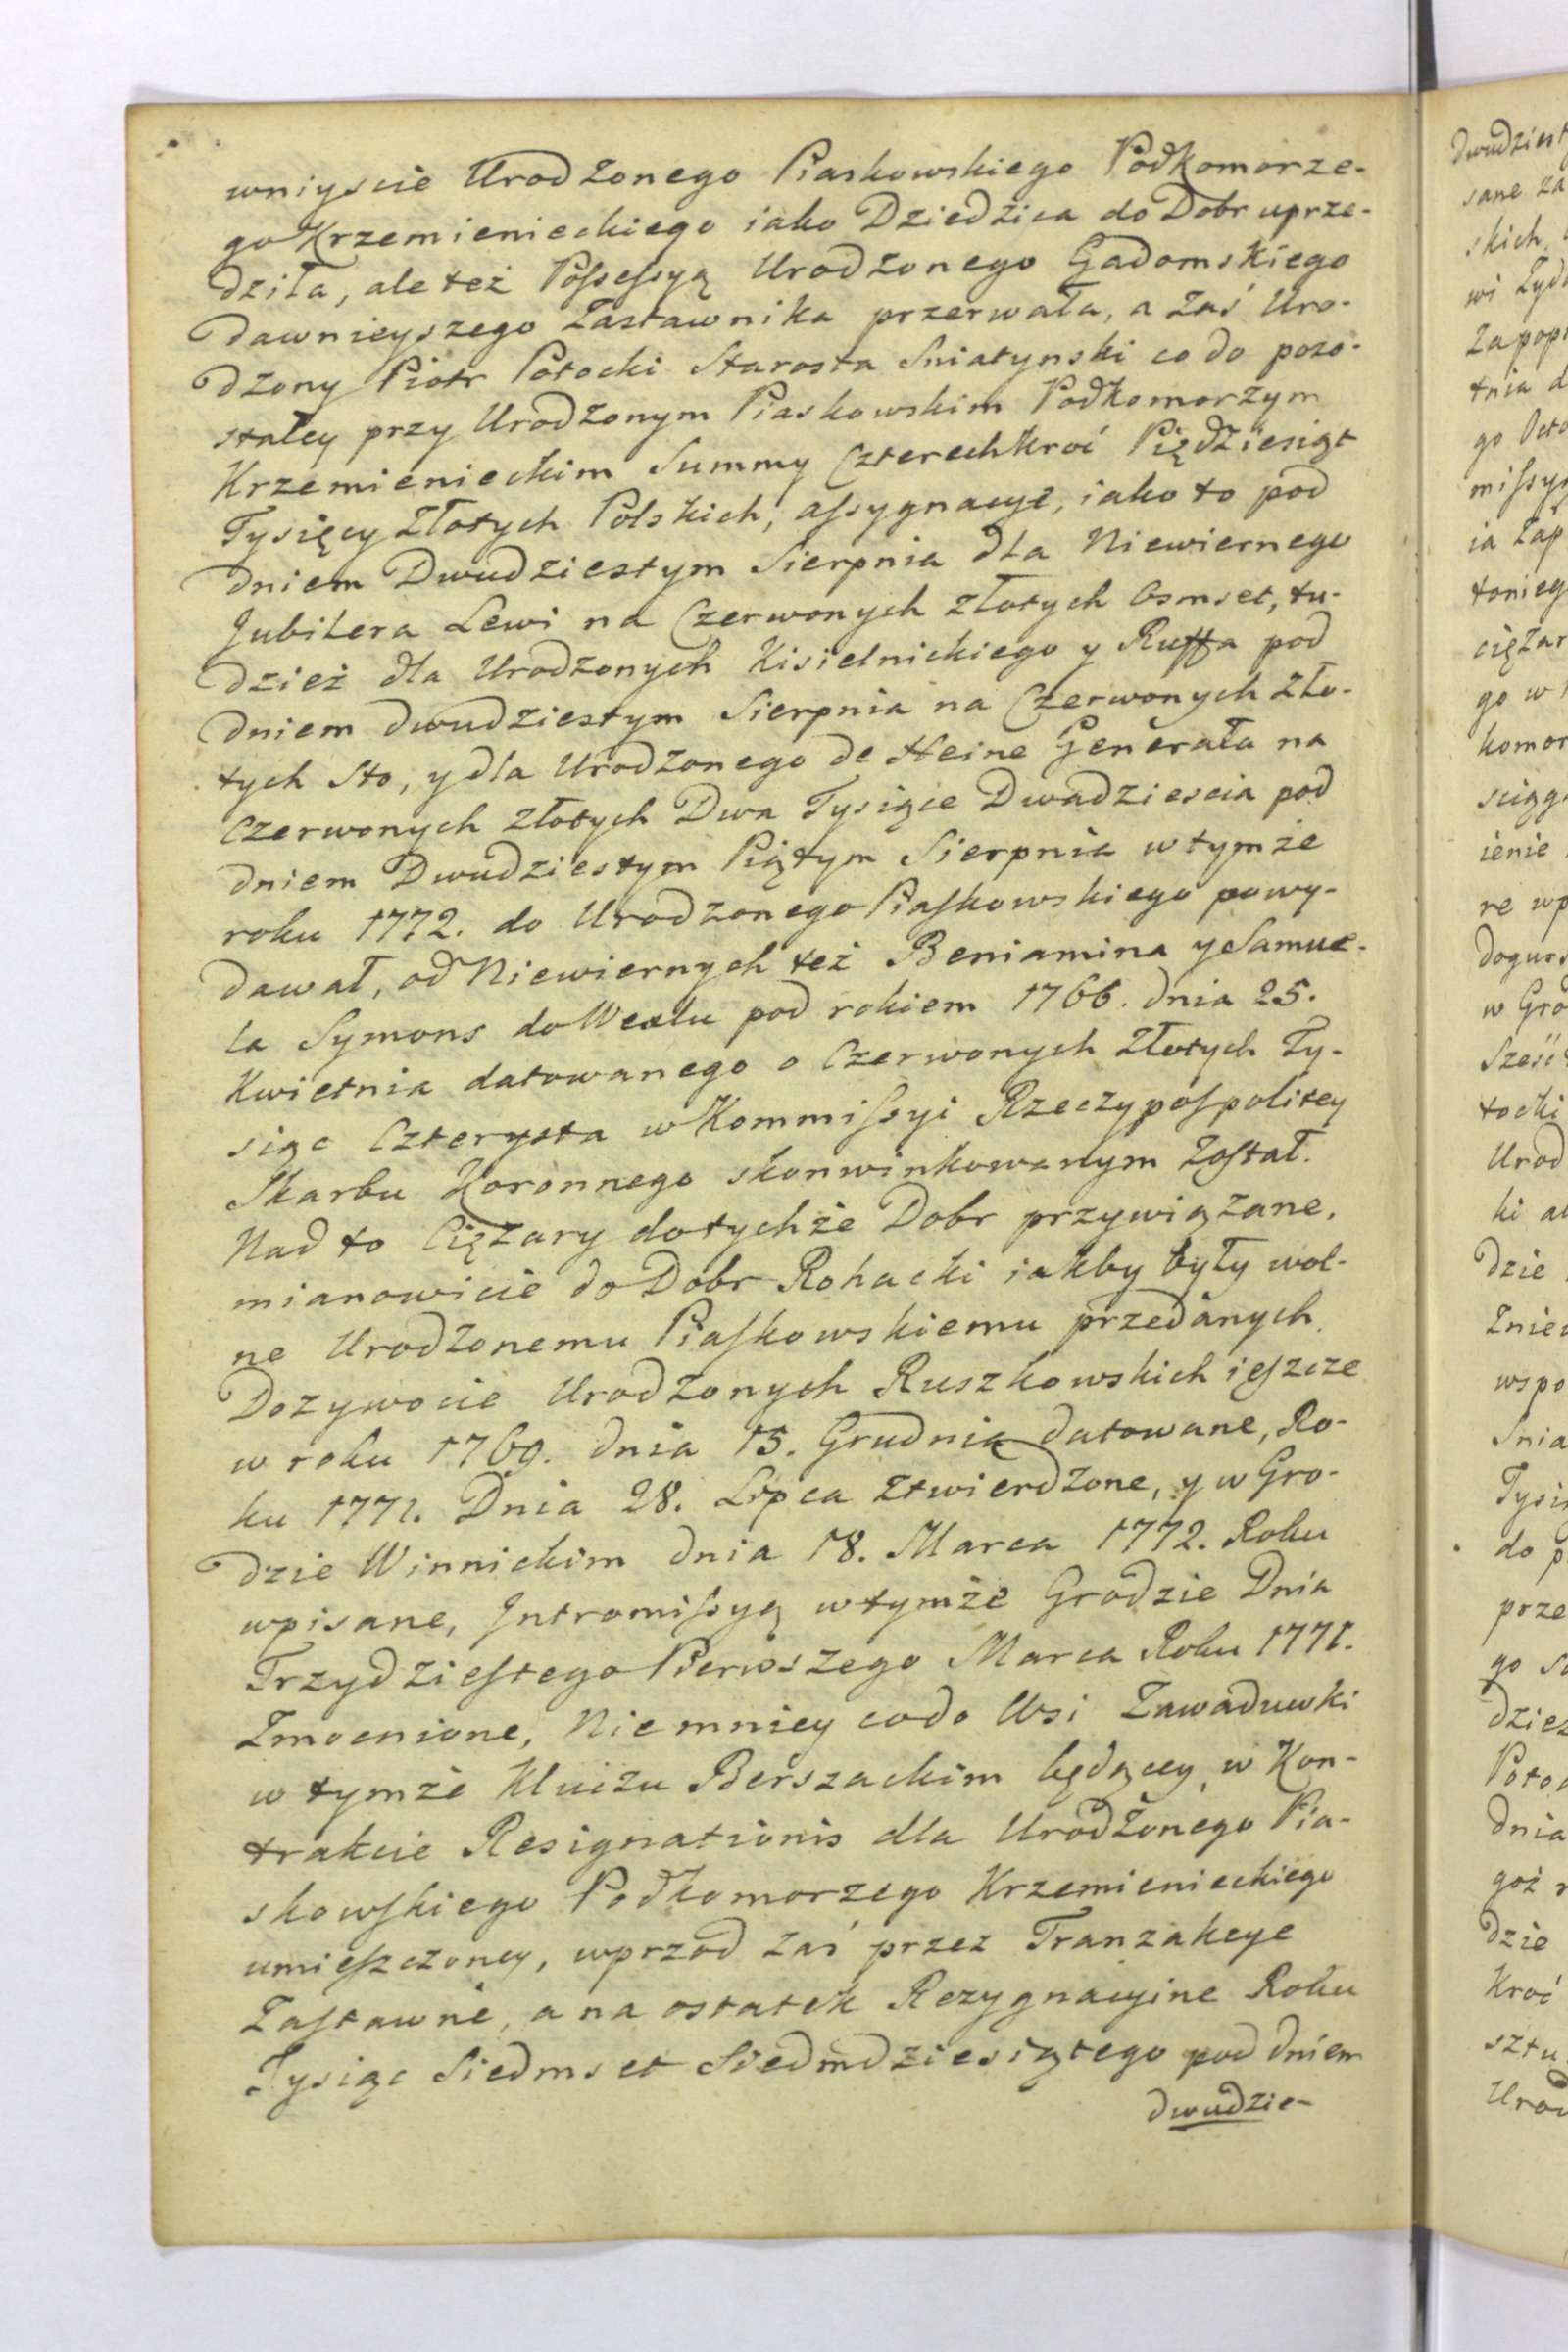 wniyscie Urodzonego Piaskowskiego Podkomorze-
go Krzemienieckiego iako Dziedzica do Dobr uprze-
dziła, ale też Possessyą Urodzonego Gadomskiego
dawnieyszego Zastawnika przerwała, a zaś Uro-
dzony Piotr Potocki Starosta Sniatynski co do pozo-
stałey przy Urodzonym Piaskowskim Podkomorzym
Krzemienieckim Summy Czterechkroć Piędziesiąt
Tysięcy Złotych Polskich, assygnacye, iako to pod
dniem Dwudziestym Sierpnia dla Niewiernego
Jubilera Lewi na Czerwonych złotych Osmset, tu-
dzież dla Urodzonych Kisielnickiego y Ruffa pod
dniem dwudziestym Sierpnia na Czerwonych Zło-
tych Sto, y dla Urodzonego de Heine Generała na
Czerwonych złotych Dwa Tysiące Dwadziescia pod
dniem Dwudziestym Piątym Sierpnia w tymże
roku 1772. do Urodzonego Piaskowskiego powy-
dawał, od Niewiernych też Beniamina y Samue-
la Symons do Wexlu pod rokiem 1766. dnia 25.
Kwietnia datowanego o Czerwonych Złotych Ty-
siąc Czterysta w Kommissyi Rzeczypospolitey
Skarbu Koronnego skonwinkowanym został.
Nad to Ciężary do tychże Dobr przywiązane,
mianowicie do Dobr Rohacki iakby były wol-
ne Urodzonemu Piaskowskiemu przedanych
Dozywocie Urodzonych Ruszkowskich ieszcze
w roku 1769. dnia 15. Grudnia datowane, Ro-
ku 1771. Dnia 28. Lipca ztwierdzone, y w Gro-
dzie Winnickim dnia 18. Marca 1772. Roku
wpisane, Intromissyą w tymże Grodzie Dnia
Trzydziestego Pierwszego Marca Roku 1771.
Zmocnione, Niemniey co do Wsi Zawaduwki
w tymże Kluczu Berszackim będącey, w Kon-
trakcie Resignationis dla Urodzonego Pia-
skowskiego Podkomorzego Krzemienieckiego
umieszczoney, wprzod zaś przez Tranzakcye
Zastawne, a na ostatek Rezygnacyine Roku
Tysiąc Siedmset Siedmdziesiątego pod dniem
dwudzie-